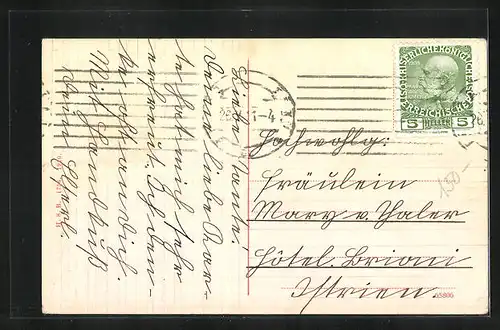 Liebe Tante!
Deine liebe Kar-
te hat mich sehr
erfreut. Ich den-
ke oft an dich.
Mit Handkuß
dein
KAISERLICHE KÖNIGLICHE
ÖSTERREICHISCHE
5 HELLER 5
1-4
Hochwohlg:
Fräulein
Mary v. Thaler
Hôtel. Brioni
Istrien.
130-
65806